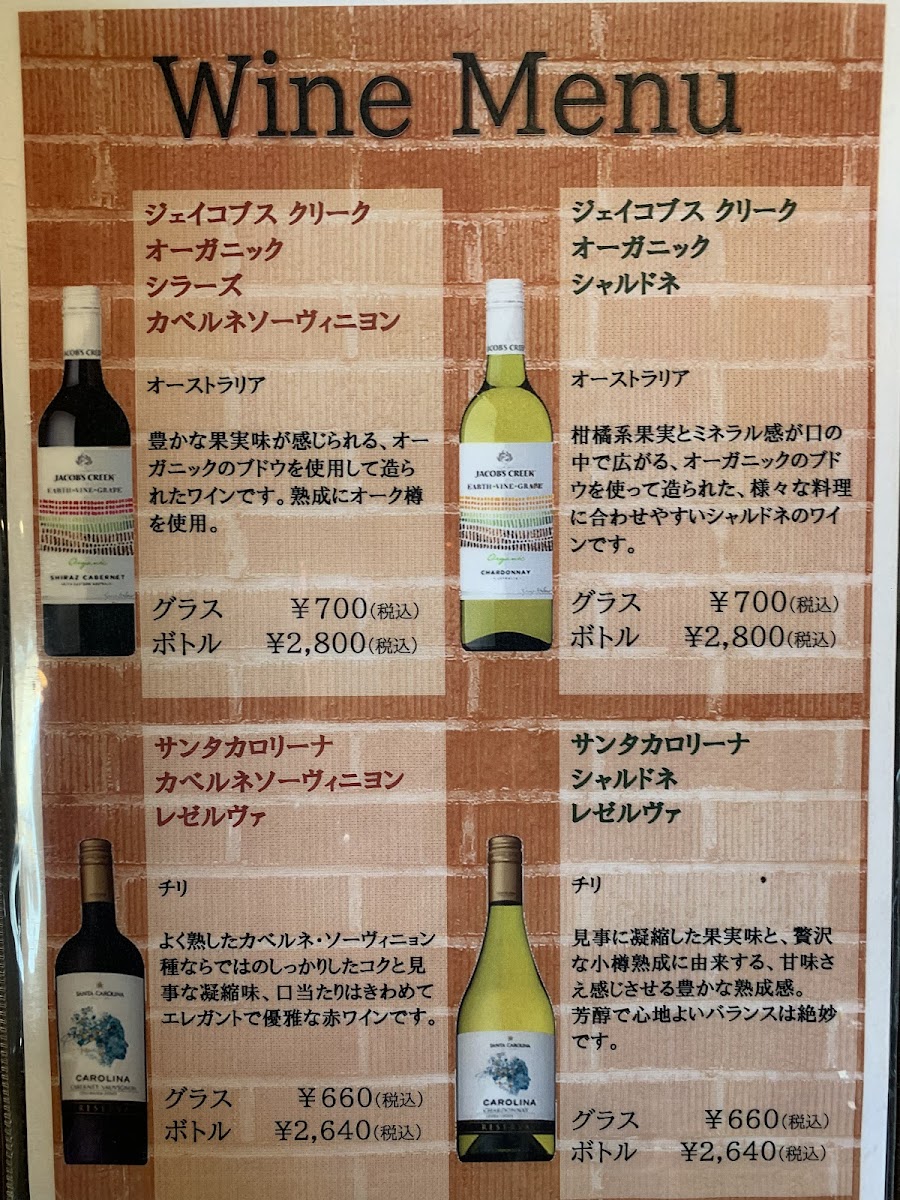 Wine Menu
ジェイコブス クリーク
オーガニック
シラーズ
カベルネソーヴィニヨン
オーストラリア
豊かな果実味が感じられる、オー
ガニックのブドウを使用して造ら
れたワインです。熟成にオーク樽
を使用。
グラス ¥700(税込)
ボトル ¥2,800(税込)
JACOB'S CREEK
JACOB'S CREEK
EARTH-VINE-GRAPE
Organic
SHIRAZ CABERNET
ジェイコブス クリーク
オーガニック
シャルドネ
オーストラリア
柑橘系果実とミネラル感が口の
中で広がる、オーガニックのブド
ウを使って造られた、様々な料理
に合わせやすいシャルドネのワイ
ンです。
グラス ¥700(税込)
ボトル ¥2,800(税込)
JACOB'S CREEK
JACOB'S CREEK
EARTH-VINE-GRAPE
Organic
CHARDONNAY
サンタカロリーナ
カベルネソーヴィニヨン
レゼルヴァ
チリ
よく熟したカベルネ・ソーヴィニョン
種ならではのしっかりしたコクと見
事な凝縮味、口当たりはきわめて
エレガントで優雅な赤ワインです。
グラス ¥660(税込)
ボトル ¥2,640(税込)
SANTA CAROLINA
CAROLINA
CABERNET SAUVIGNON
RESERVA
サンタカロリーナ
シャルドネ
レゼルヴァ
チリ
見事に凝縮した果実味と、贅沢
な小樽熟成に由来する、甘味さ
え感じさせる豊かな熟成感。
芳醇で心地よいバランスは絶妙
です。
グラス ¥660(税込)
ボトル ¥2,640(税込)
SANTA CAROLINA
CAROLINA
CHARDONNAY
RESERVA